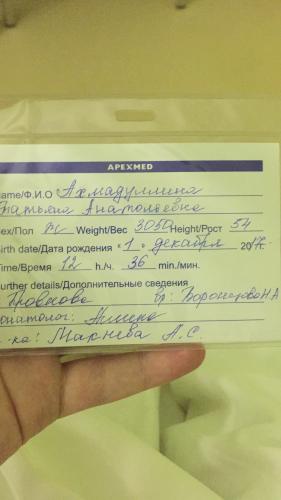 APEXMED
ame/Ф.И.О Ахмадуллина
Наталья Анатольевна
ex/Пол Ж Weight/Вес 3050 Height/Рост 54
irth date/Дата рождения «1» декабря 2017г.
ime/Время 12 h./ч. 36 min./мин.
urther details/Дополнительные сведения
Вр: Воронцова Н А
онатолог:
ка: Макнева А.С.